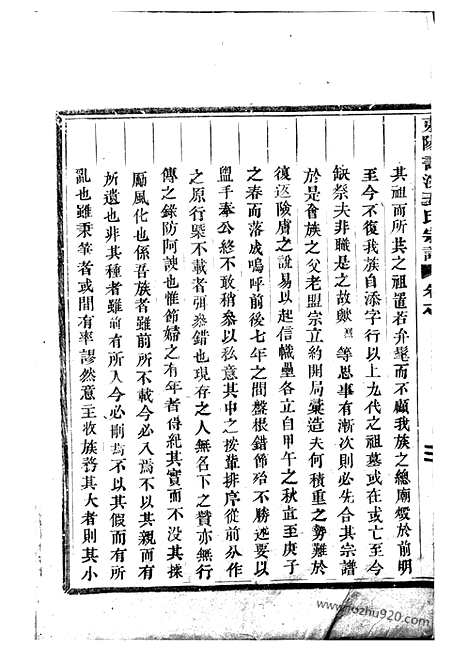 其祖而所共之祖置若弁髦而不顧我族之總廟燬於前明
至今不復我族自添字行以上九代之祖墓或在或亡至今
缺祭夫非職是之故歟 等思事有漸次則必先合其宗譜
於是會族之父老盟宗立約開局彙造夫何積重之勢難於
復返險膚之說易以起信幟壘各立自甲午之秋直至庚子
之春而落成嗚呼前後七年之間盤根錯節殆不勝述要以
盥手奉公終不敢稍參以私意其中之按輩排序從前分作
之原行槩不載者弭參錯也現存之人無名下之贊亦無行
傳之錄防阿諛也惟節婦之有年者得紀其實而不沒其操
勵風化也係吾族者雖前所不載今必入焉不以其親而有
所遺也非其種者雖前有所入今必削焉不以其假而有所
亂也雖秉筆者或間有率謬然意主收族務其大者則其小
www.jiozhu920.com